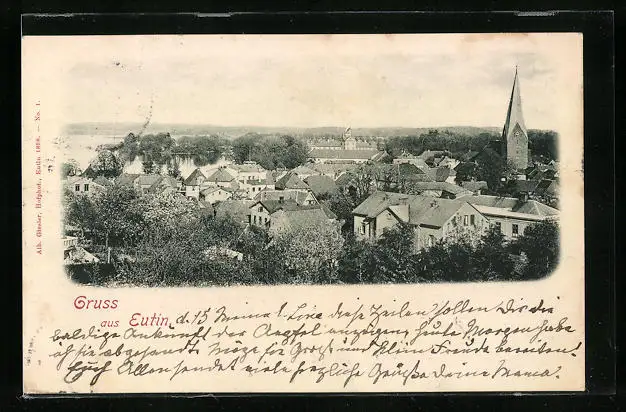 Alb. Giesler, Hofphot., Eutin 1898. — No. 1.
Gruss
aus Eutin, d. 15
Diese Zeilen sollen Dir die
baldige Ankunft der anzeigen, heute Morgen habe
ich sie abgesandt. Möge für Groß und Klein Freude bereiten!
Euch Allen sendet viele herzliche Grüße Deine Mama.